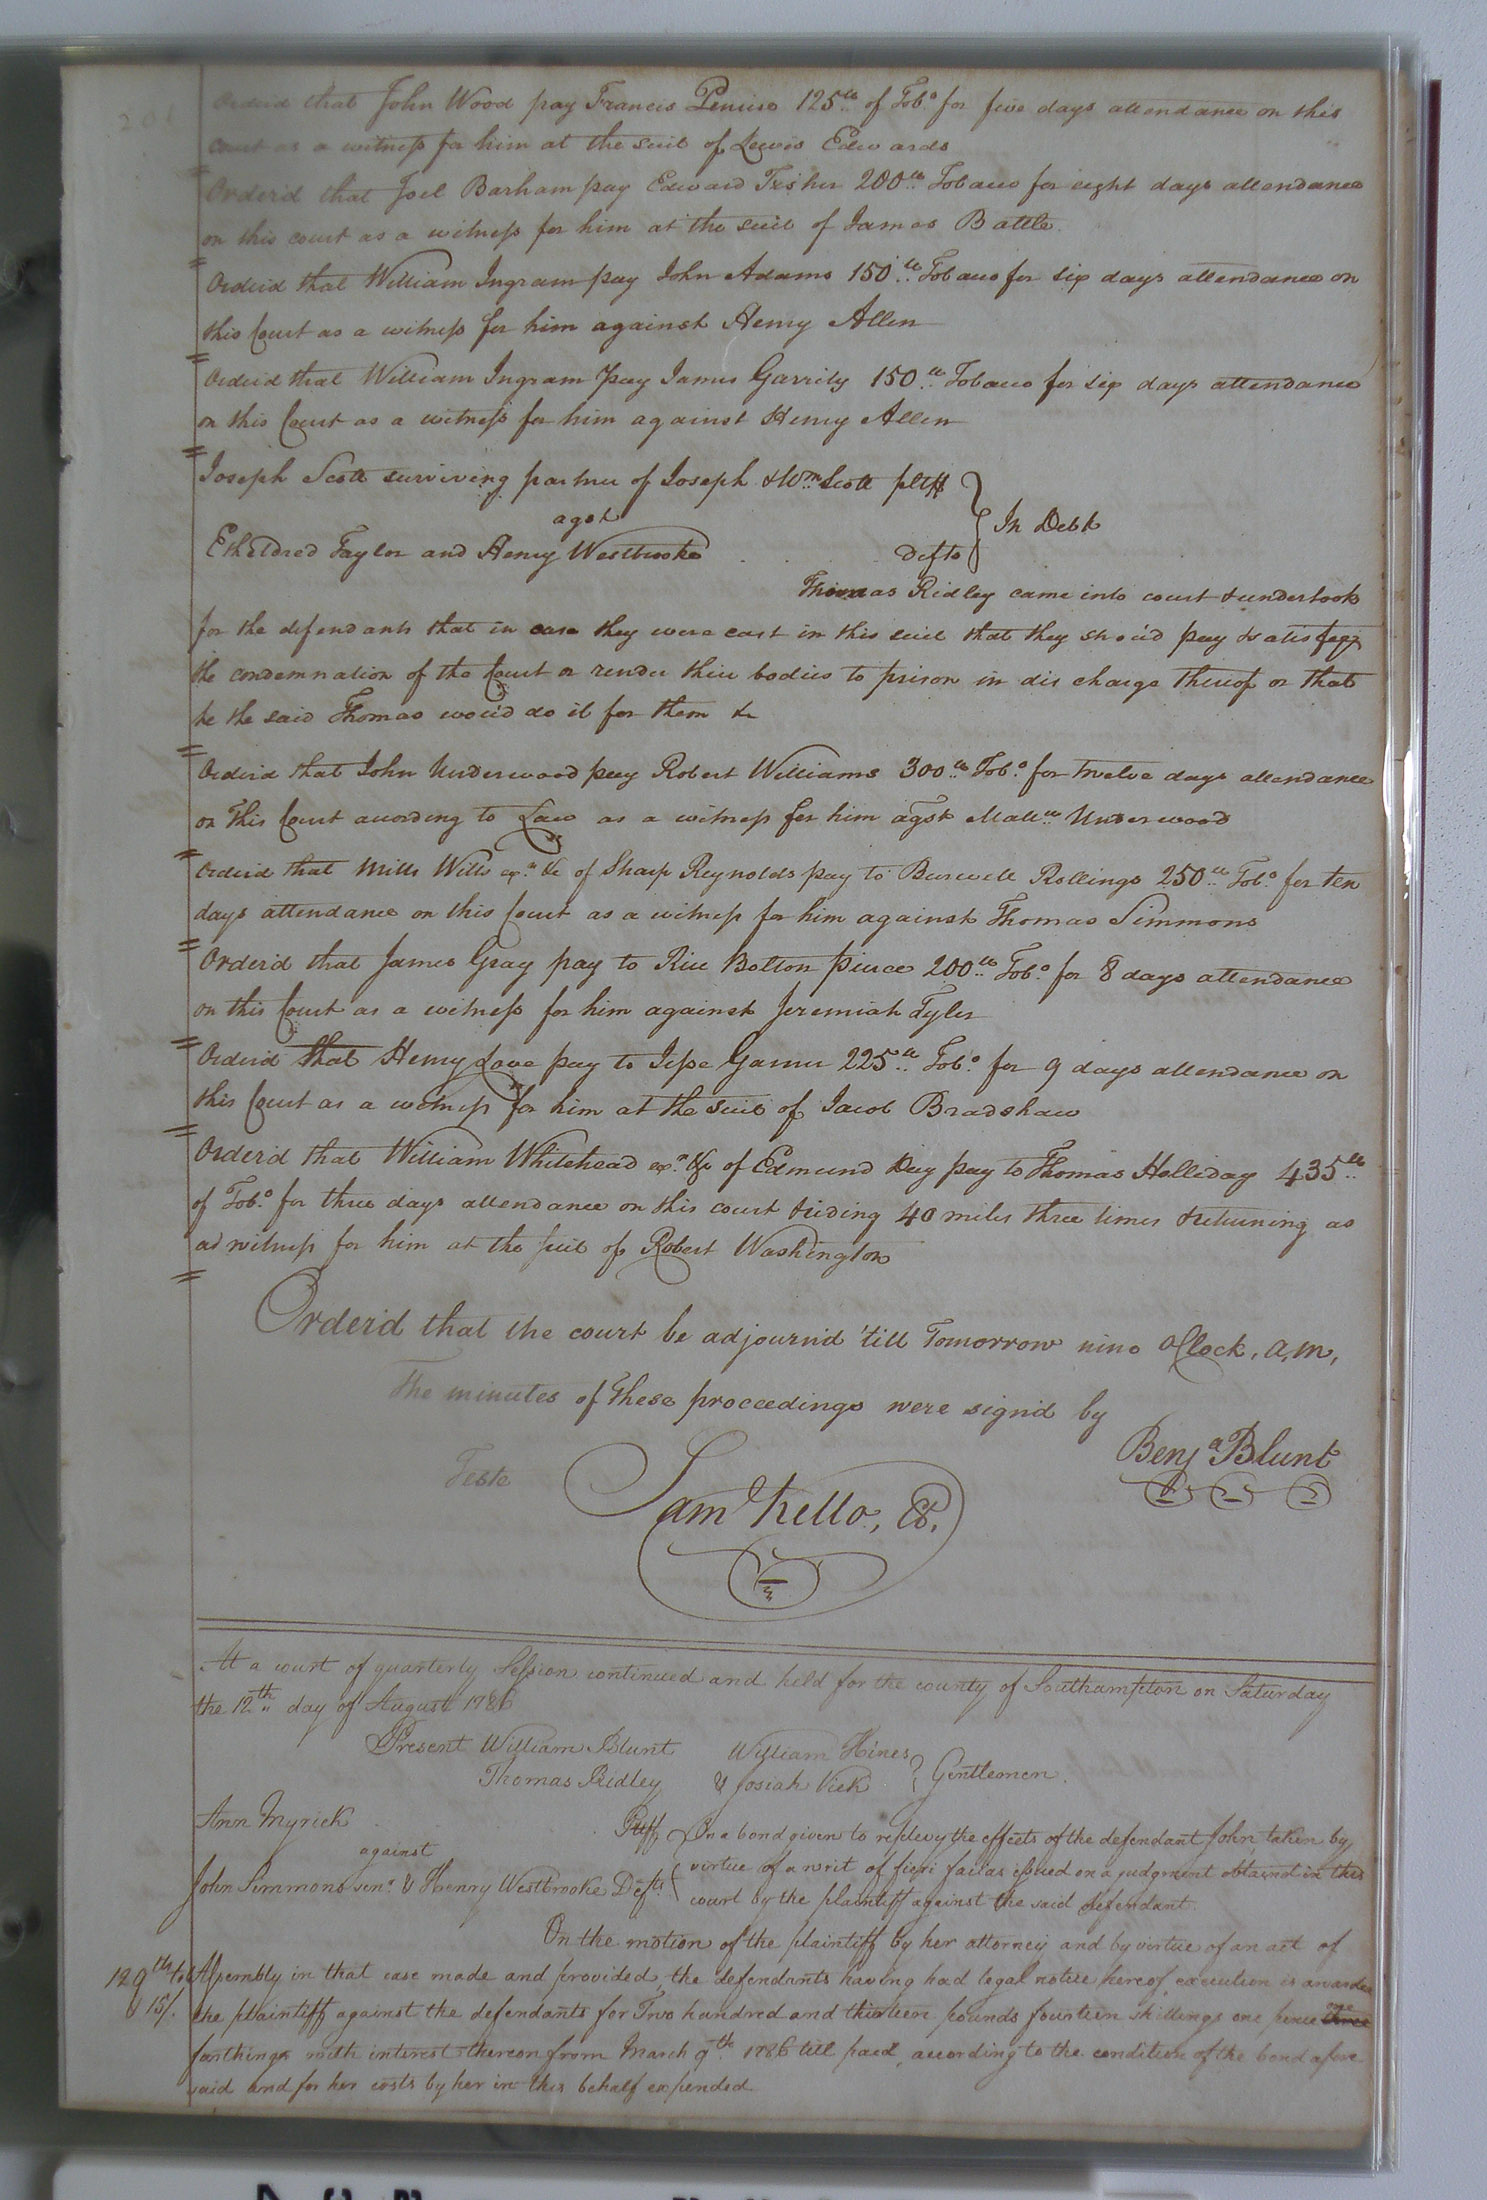 Orderid that John Wood pay Francis 125lb of Tobo for five days attendance on this
court as a witness for him at the suit of Lewis Edwards
Orderid that Joel Barham pay Edward Fisher 200lb Tobacco for eight days attendance
on this court as a witness for him at the suit of James Battle.
Orderid that William Ingram pay John Adams 150lb Tobacco for six days attendance on
this Court as a witness for him against Henry Allen
Orderid that William Ingram pay James Garrity 150lb Tobacco for six days attendance
on this Court as a witness for him against Henry Allen
Joseph Scott surviving partner of Joseph & Wm Scott pltff
agst
In Debt
Etheldred Taylor and Henry Westbrooke Defts
Thomas Ridley came into court & undertook
for the defendants that in case they were cast in this suit that they shou'd pay & satisfy
the condemnation of the Court or render their bodies to prison in discharge thereof or that
he the said Thomas wou'd do it for them &c
Orderid that John Underwood pay Robert Williams 300lb Tobo for twelve days attendance
on this Court according to Law as a witness for him agst Matt.w Underwood
Orderid that Mills Wills exr &c of Sharp Reynolds pay to Burwell Rollings 250lb Tobo for ten
days attendance on this Court as a witness for him against Thomas Simmons
Orderid that James Gray pay to Rice Bolton Pierce 200lb Tobo for 8 days attendance
on this Court as a witness for him against Jeremiah Tyler
Orderid that Henry Love pay to Jesse Garner 225lb Tobo for 9 days attendance on
this Court as a witness for him at the suit of Jacob Bradshaw
Orderid that William Whitehead exr &c of Edmund Day pay to Thomas Holliday 435lb
of Tobo for three days attendance on this court & riding 40 miles three times & returning as
a witness for him at the suit of Robert Washington
Orderid that the court be adjournid 'till Tomorrow nine oClock, a,m,
The minutes of these proceedings were signid by
Benja Blunt
Teste
Saml Kello, Cl.
At a court of quarterly Session continued and held for the county of Southampton on Saturday
the 12th day of August 1786
Present William Blunt William Hines
Thomas Ridley & Josiah Vick Gentlemen.
Ann Myrick Pltff On a bond given to replevy the effects of the defendant John, taken by
against virtue of a writ of fieri facias issued on a judgment obtained in this
John Simmons senr & Henry Westbrooke Defts court by the plaintiff against the said defendant.
On the motion of the plaintiff by her attorney and by virtue of an act of
Assembly in that case made and provided, the defendants having had legal notice hereof, execution is awarded
129lb tob
& 15/.
the plaintiff against the defendants for Two hundred and thirteen pounds fourteen shillings one pence one
farthings with interest thereon from March 9th 1786 till paid, according to the condition of the bond afore
said and for her costs by her in this behalf expended